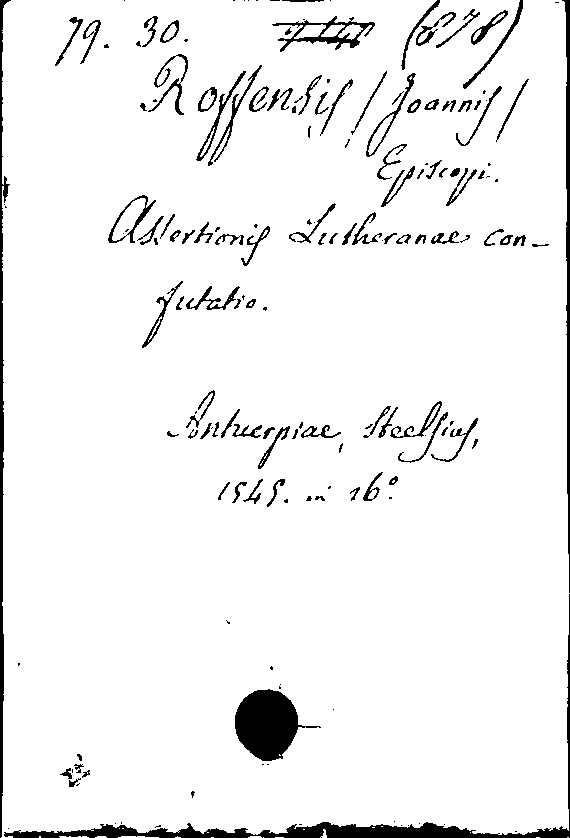 79. 30. (878)
Roffensis / Joannis /
Episcopi.
Assertionis Lutheranae con-
futatio.
Antwerpiae, Steelsius,
1545. in 16°.